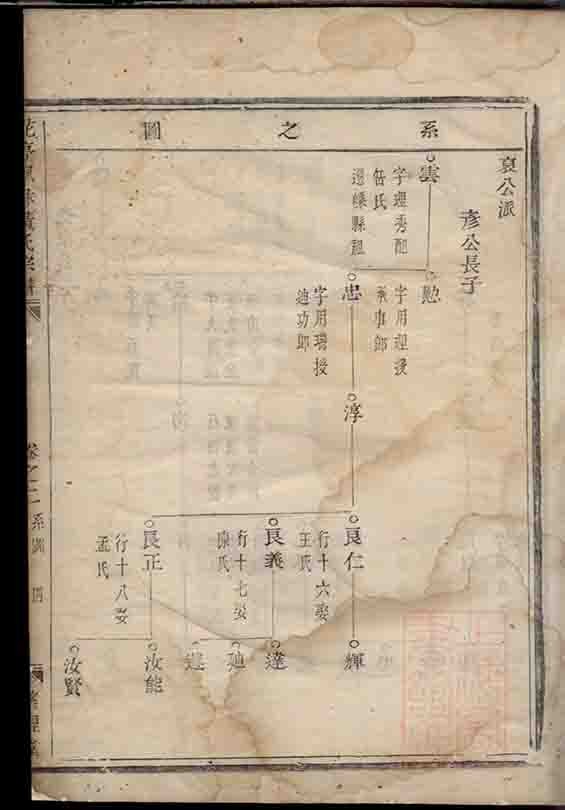 系之圖
裒公派
彥公長子
雲
字理秀配
缶氏
遷嵊縣
勲
字用理授
承事郎
忠
字用瑞授
迪功郎
淳
良仁
行十六娶
王氏
良義
行十七娶
陳氏
良正
行十八娶
孟氏
輝
達
迪
汝能
汝賢
黃氏宗譜
卷之二
系圖
四